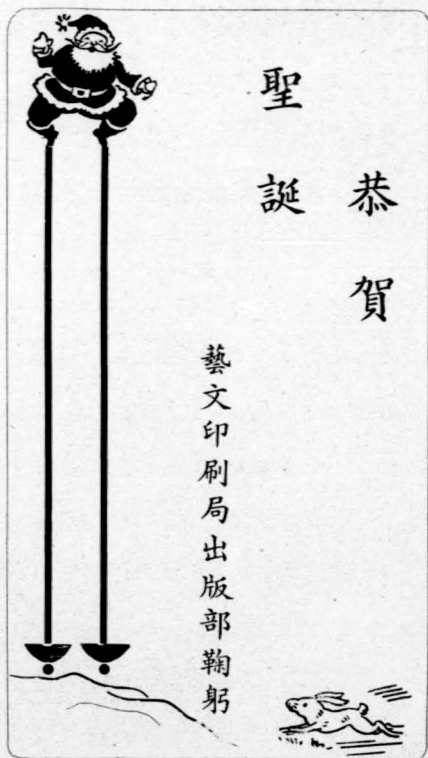 恭賀
聖誕
藝文印刷局出版部鞠躬